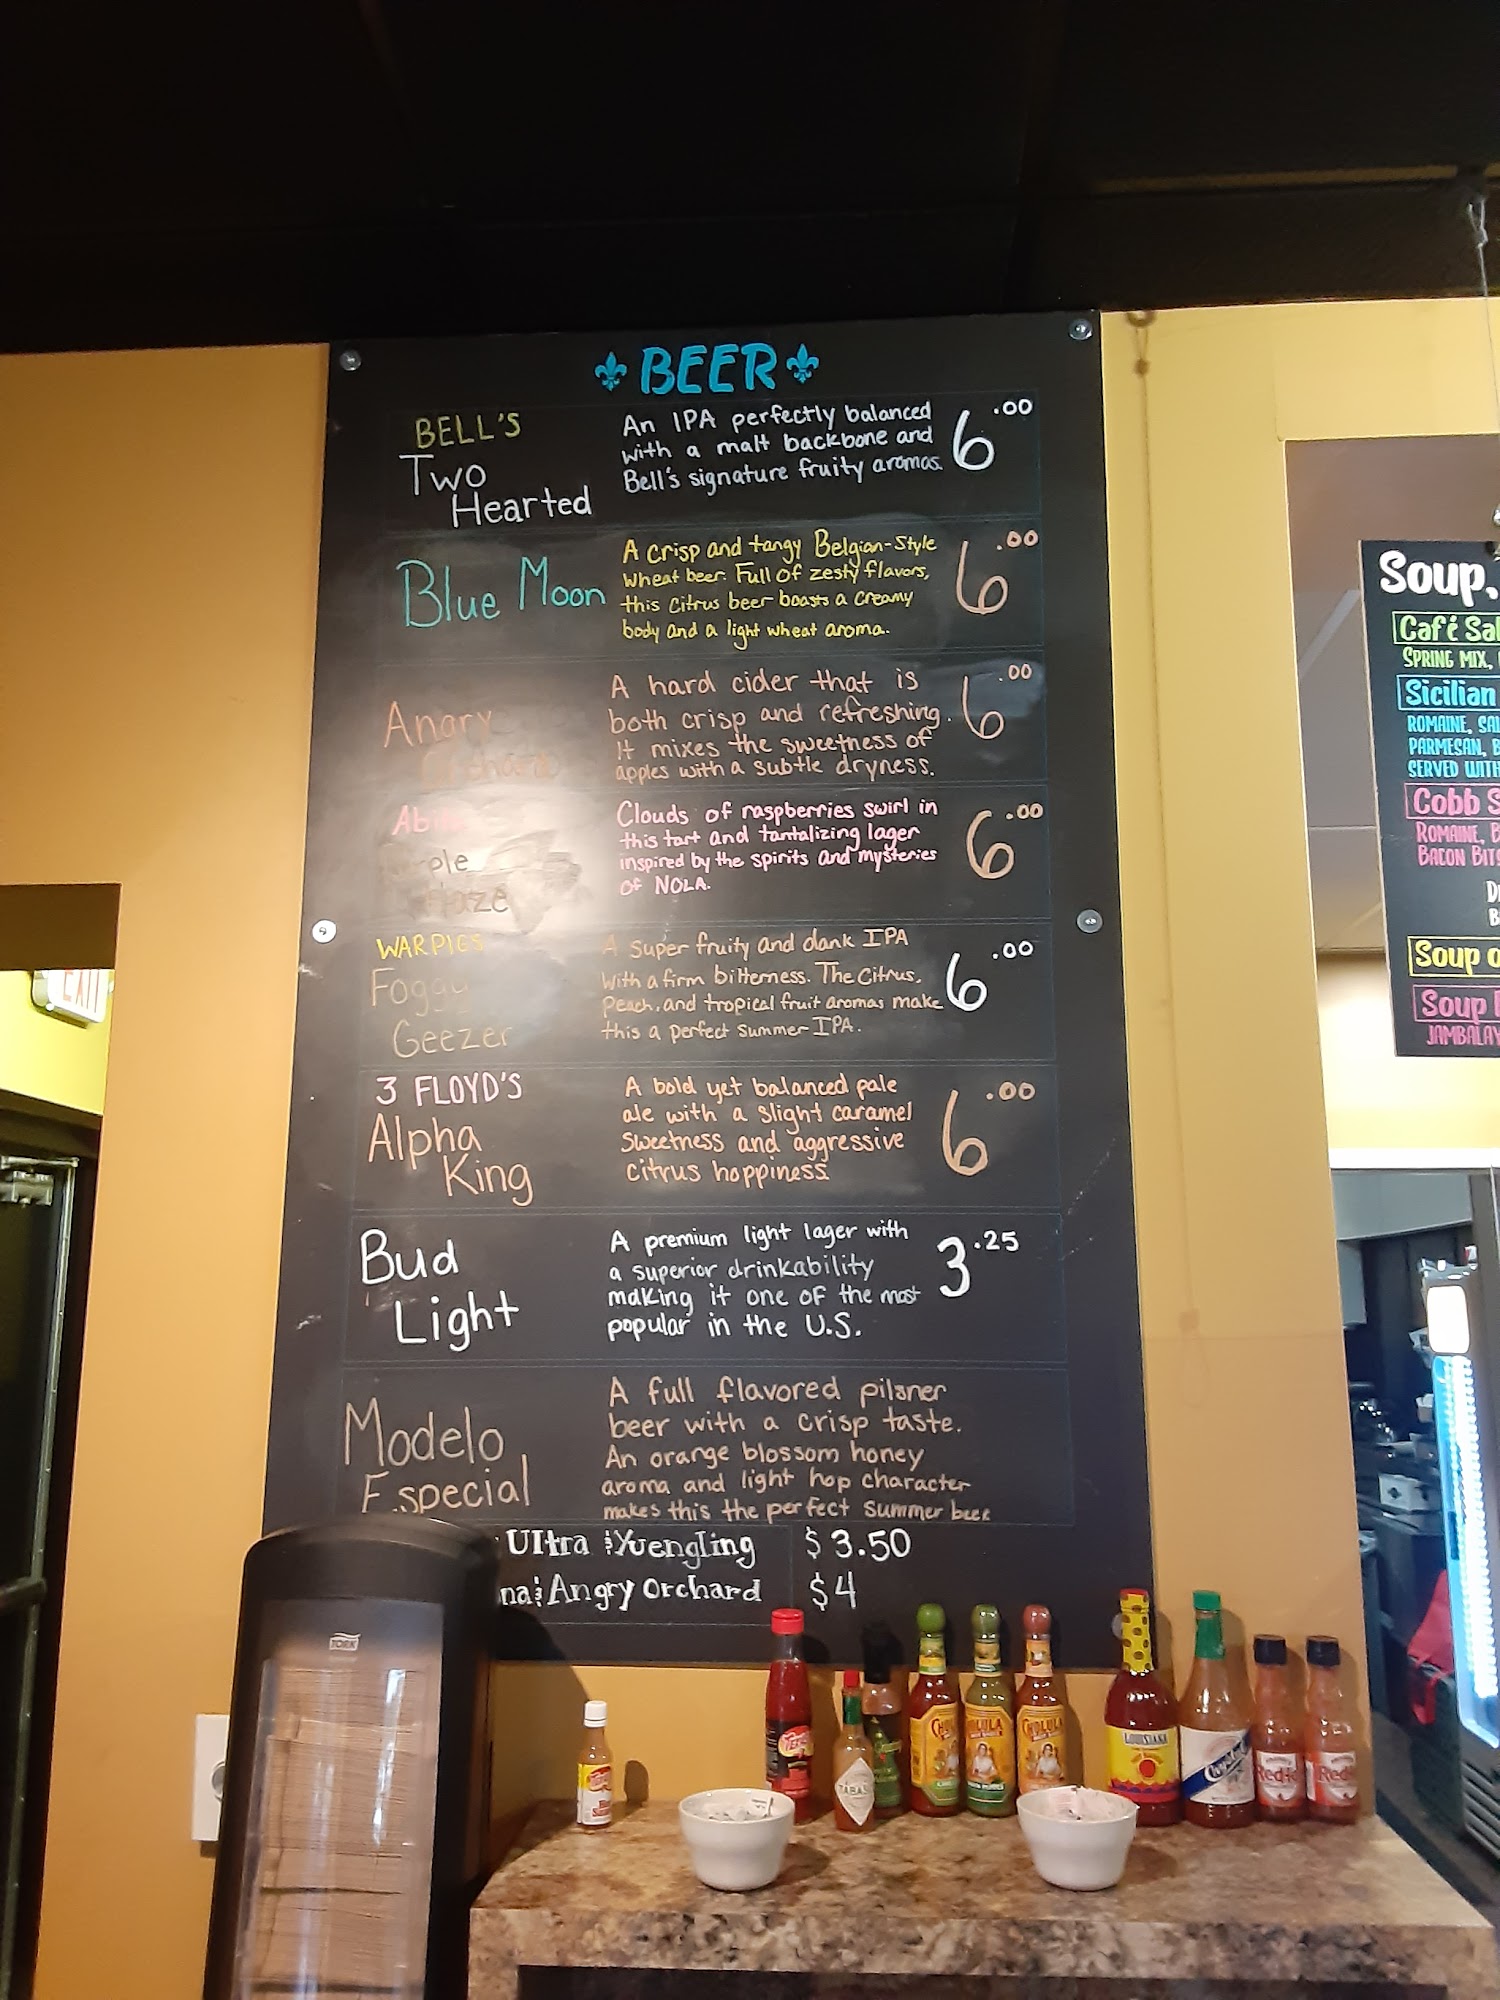 BEER
BELL'S
Two
Hearted
An IPA perfectly balanced
with a malt backbone and
Bell's signature fruity aromas.
6.00
Blue Moon
A crisp and tangy Belgian-Style
wheat beer. Full of zesty flavors,
this citrus beer boasts a creamy
body and a light wheat aroma.
6.00
Angry
Orchard
A hard cider that is
both crisp and refreshing.
It mixes the sweetness of
apples with a subtle dryness.
6.00
Abita
Purple
Haze
Clouds of raspberries swirl in
this tart and tantalizing lager
inspired by the spirits and mysteries
of NOLA.
6.00
WARPIGS
Foggy
Geezer
A super fruity and dank IPA
with a firm bitterness. The Citrus,
Peach, and tropical fruit aromas make
this a perfect summer IPA.
6.00
3 FLOYD'S
Alpha
King
A bold yet balanced pale
ale with a slight caramel
sweetness and aggressive
citrus hoppiness
6.00
Bud
Light
A premium light lager with
a superior drinkability
making it one of the most
popular in the U.S.
3.25
Modelo
Especial
A full flavored pilsner
beer with a crisp taste.
An orange blossom honey
aroma and light hop character
makes this the perfect summer beer
Ultra & Yuengling $3.50
na & Angry Orchard $4
Soup,
Café Sal
SPRING MIX,
Sicilian
ROMAINE, SAL
PARMESAN, B
SERVED WITH
Cobb S
ROMAINE, B
BACON BITS
D
B
Soup o
Soup
JAMBALAY
EXIT
TORK
CHOLULA
CHOLULA
LOUISIANA
Crystal
Red
Red